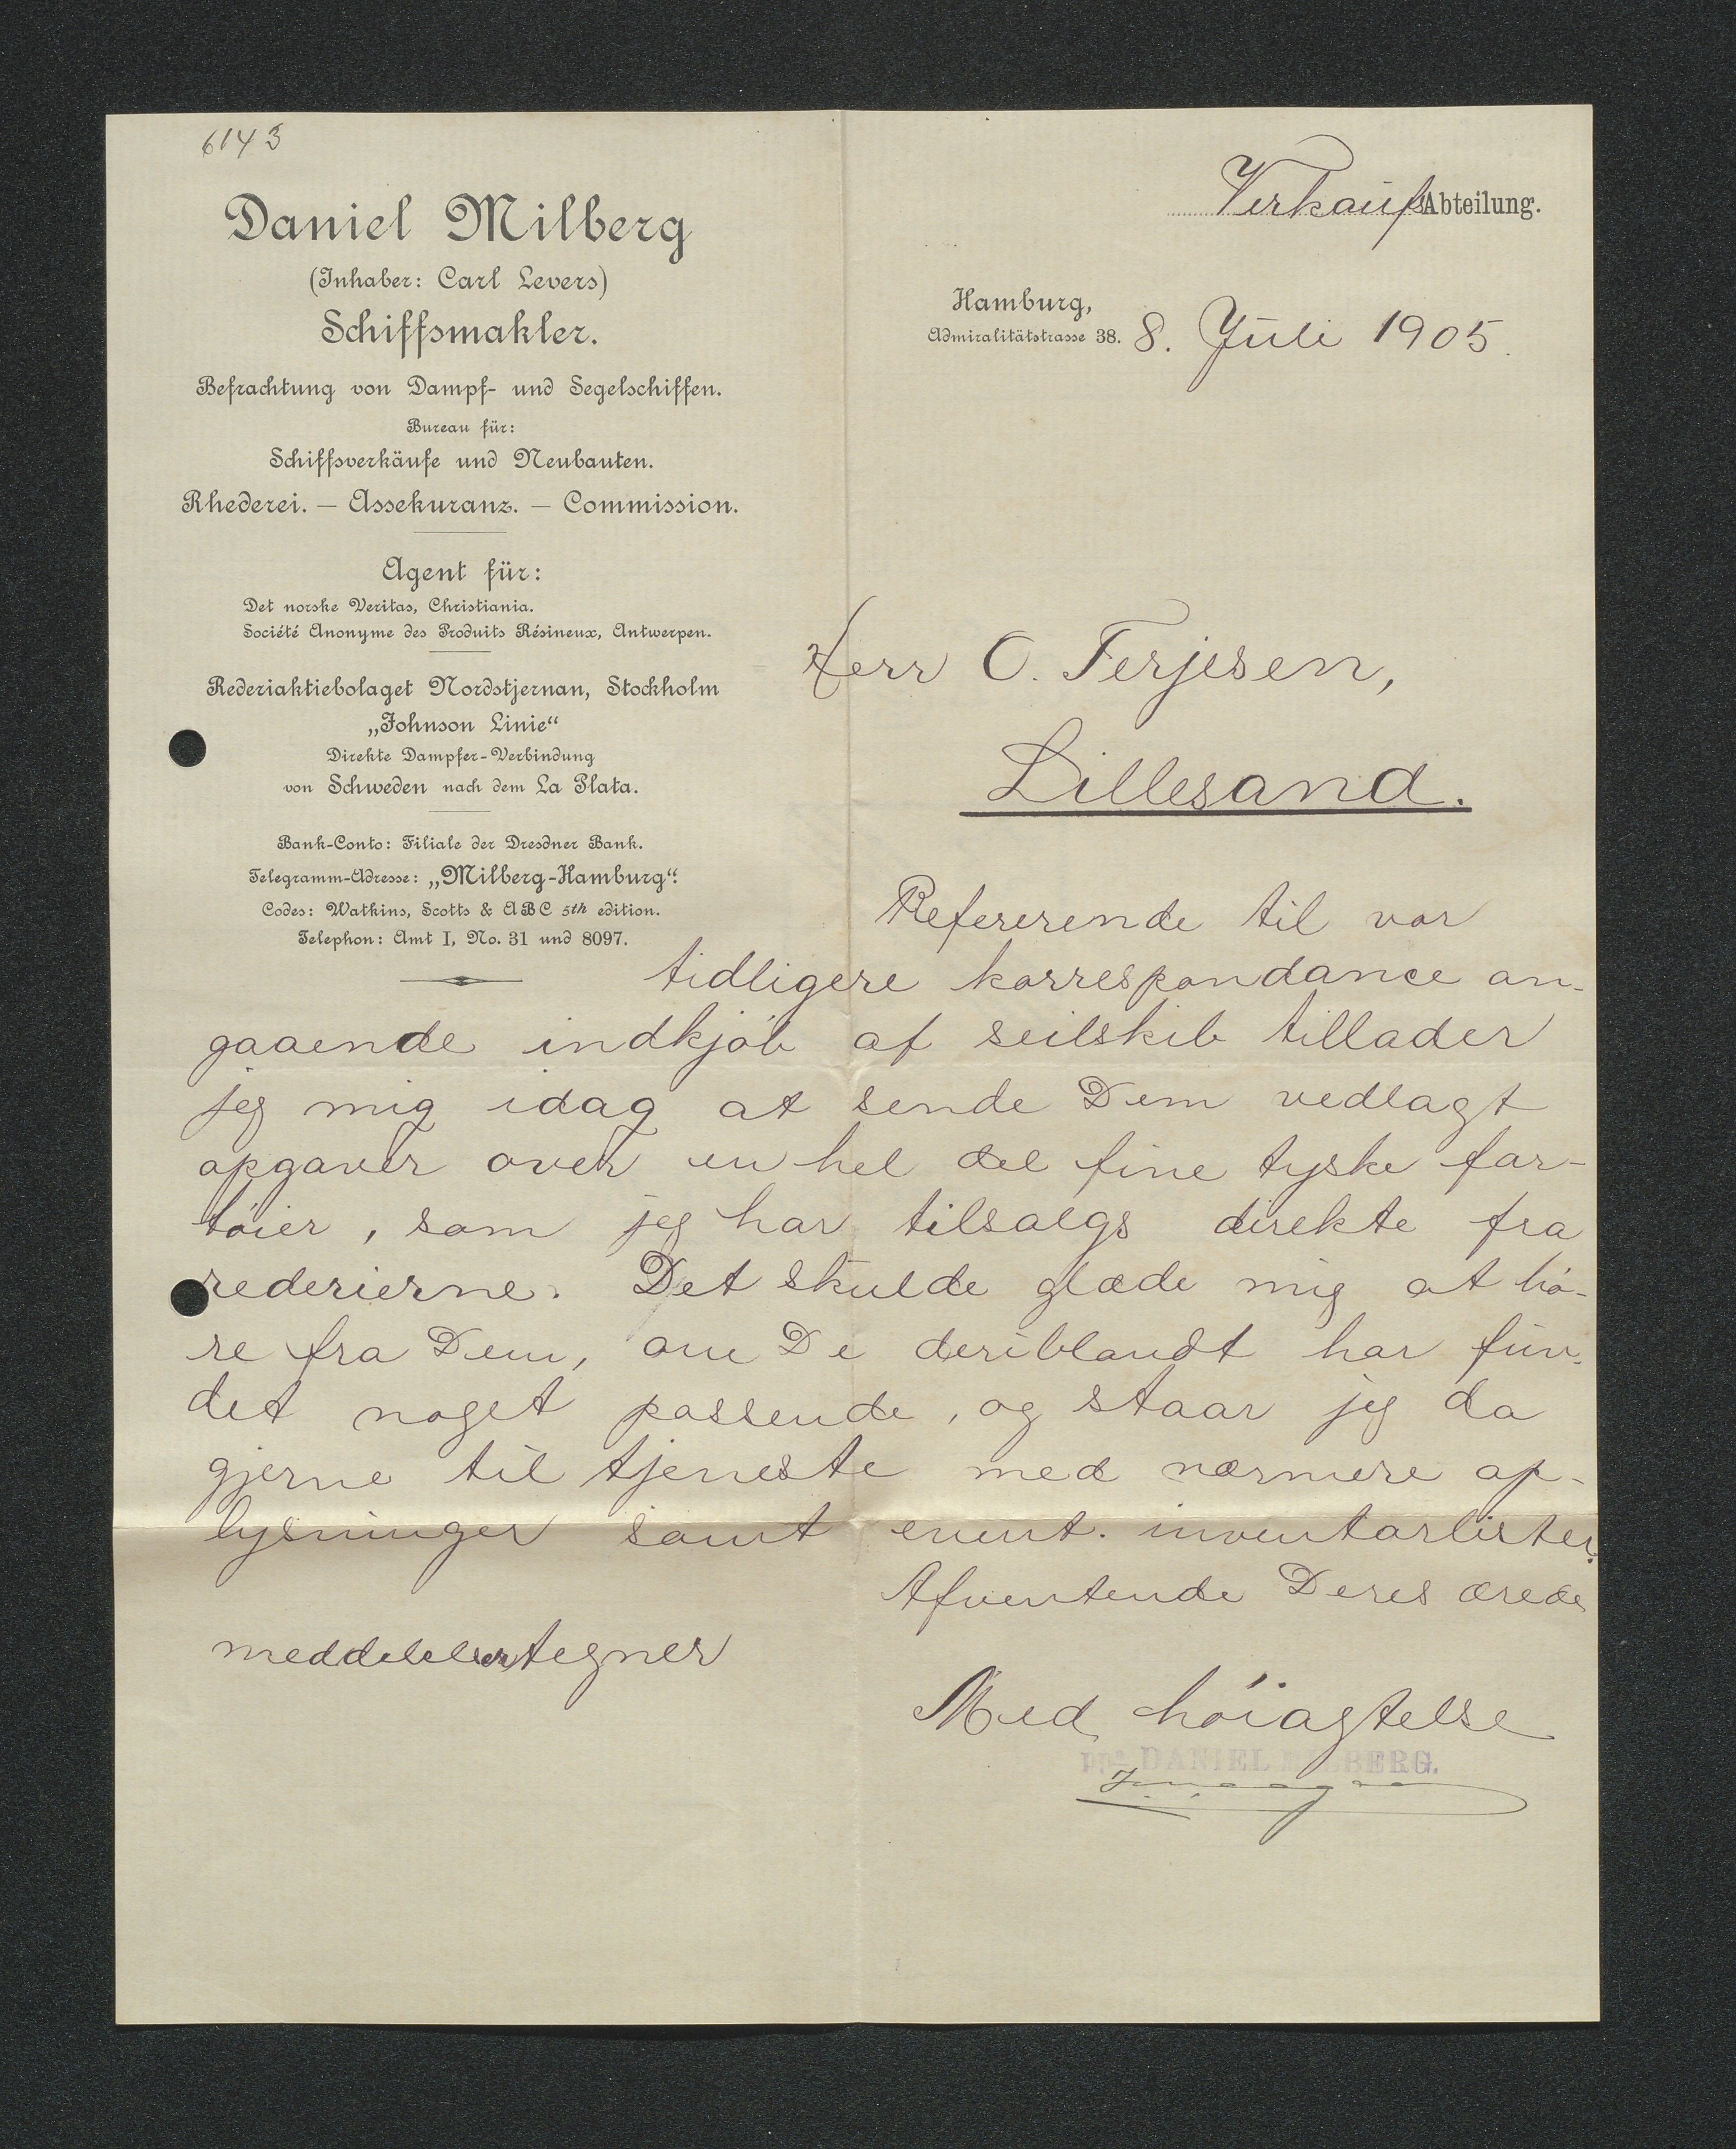 6143
Daniel Milberg
(Inhaber: Carl Levers)
Schiffsmakler.
Befrachtung von Dampf- und Segelschiffen.
Bureau für:
Schiffsverkäufe und Neubauten.
Rhederei. — Assekuranz. — Commission.
Agent für:
Det norske Veritas, Christiania.
Société Anonyme des Produits Résineux, Antwerpen.
Rederiaktiebolaget Nordstjernan, Stockholm
„Johnson Linie“
Direkte Dampfer-Verbindung
von Schweden nach dem La Plata.
Bank-Conto: Filiale der Dresdner Bank.
Telegramm-Adresse: „Milberg-Hamburg“.
Codes: Watkins, Scotts & ABC 5th edition.
Telephon: Amt I, No. 31 und 8097.
Verkaufs Abteilung.
Hamburg,
Admiralitätstrasse 38. 8. Juli 1905.
Herr O. Terjesen,
Lillesand.
Refererende til vor
tidligere korrespondance an-
gaaende indkjöb af seilskib tillader
jeg mig idag at sende Dem vedlagt
opgaver over en hel del fine tyske far-
töier, som jeg har tilsalgs direkte fra
rederierne. Det skulde glæde mig at hö-
re fra Dem, om De deriblandt har fun-
det noget passende, og staar jeg da
gjerne til tjeneste med nærmere op-
lysninger samt event. inventarlister.
Afventende Deres ærede
meddelelser tegner
Med höiagtelse
ppa DANIEL MILBERG.